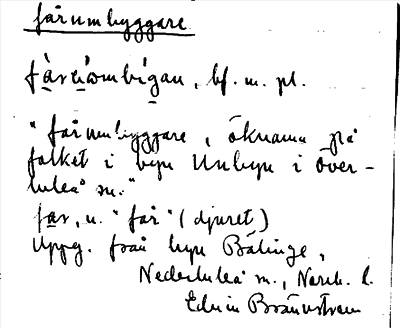 fårumbyggare
fàrùombigan, bf. m. pl.
"fårumbyggare, öknamn på
folket i byn Unbyn i Över-
luleå sn."
far, n. "får" (djuret)
Uppg. från byn Bälinge,
Nederluleå sn., Norrb. l.
Edvin Brännström